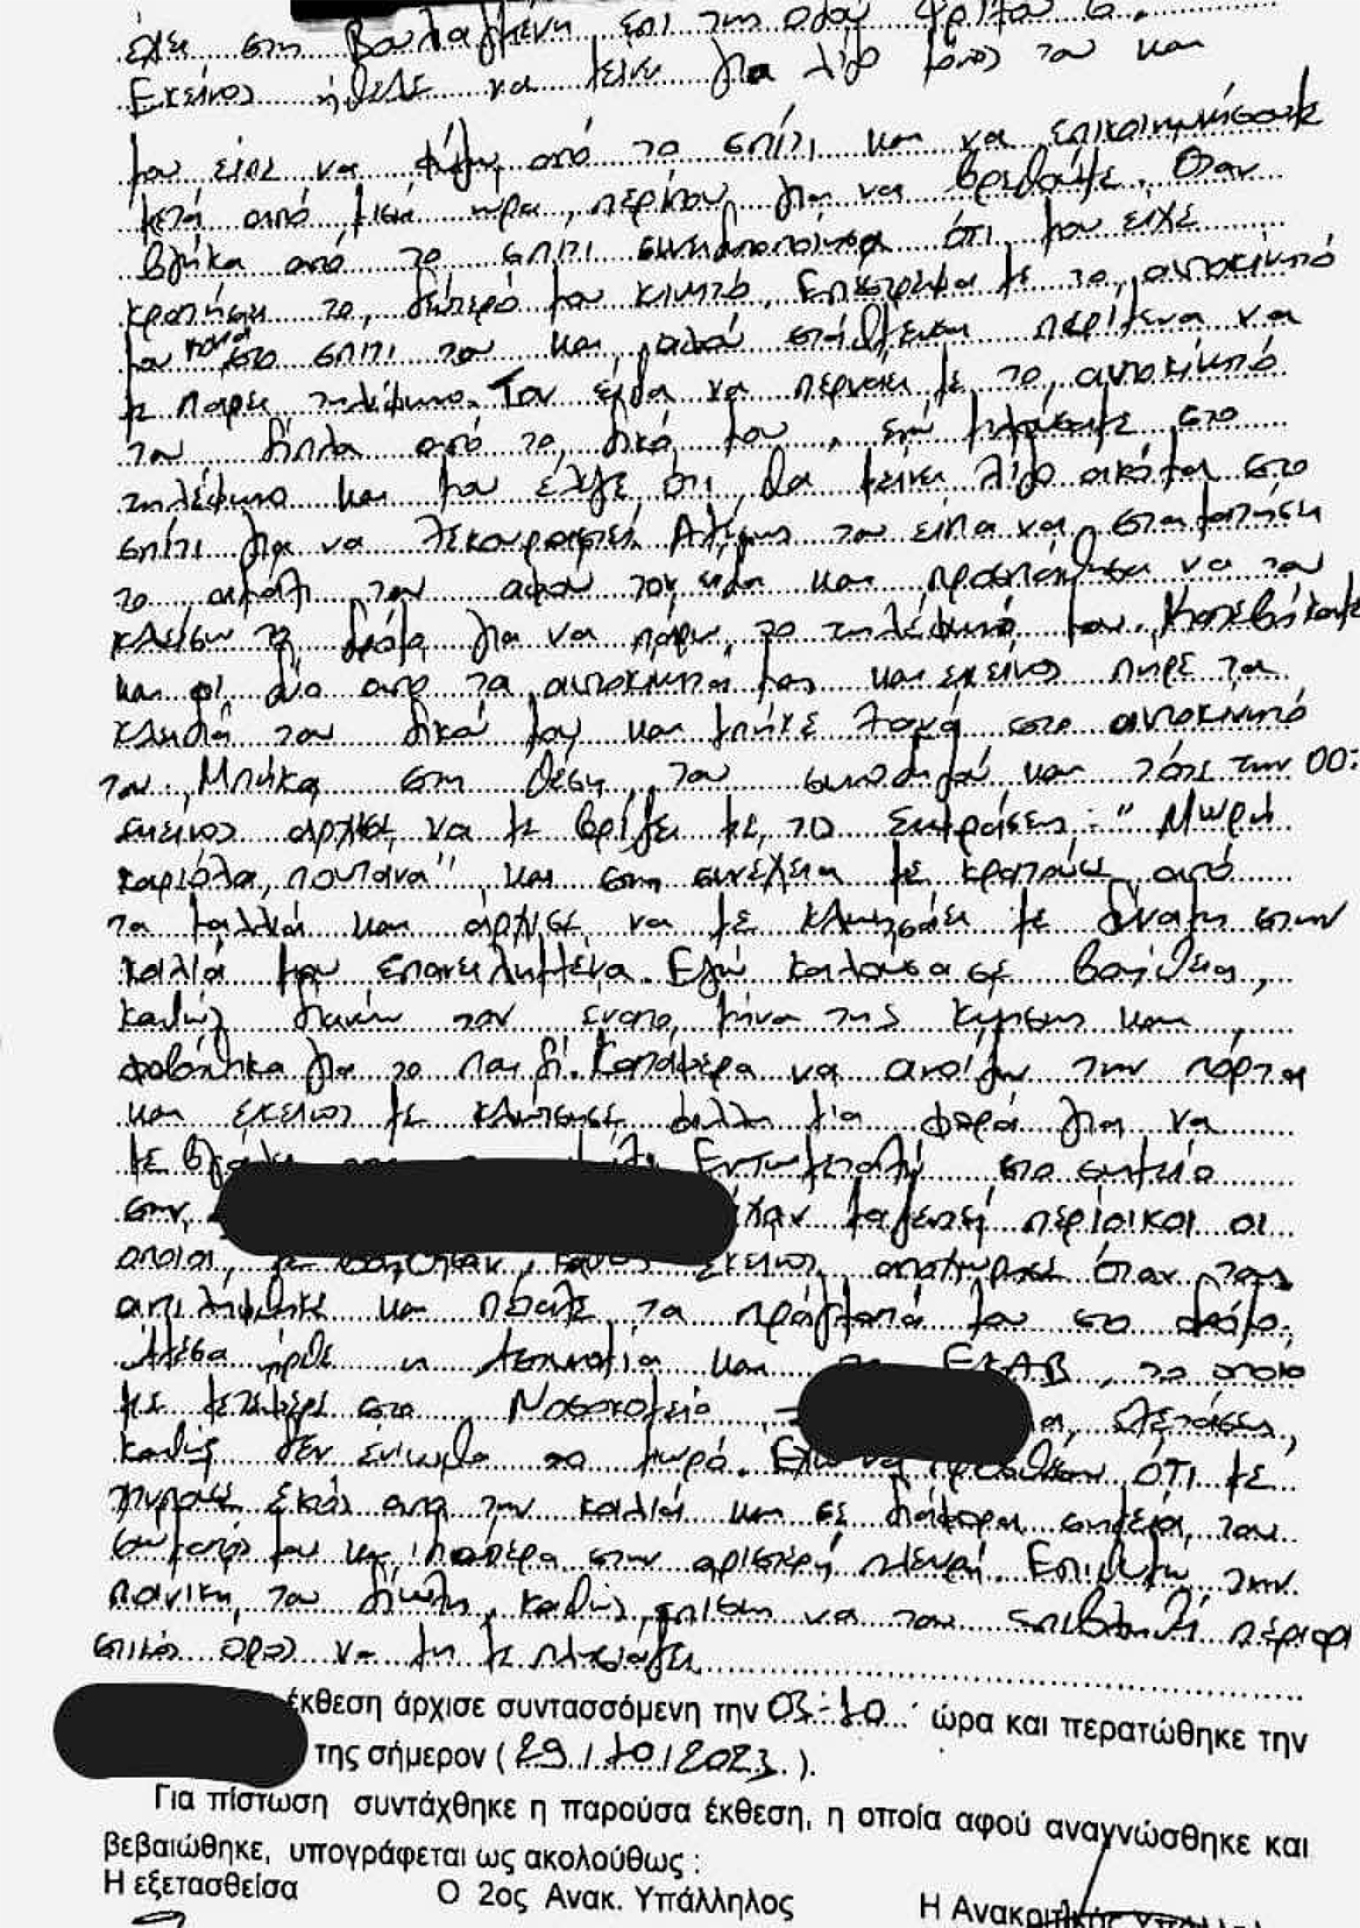 έχει στη Βουλιαγμένη επί της οδού
Εκείνος ήθελε να μείνει για λίγο μόνος του και
μου είπε να φύγω από το σπίτι και να επικοινωνήσουμε
μετά από μισή ώρα περίπου για να βρεθούμε. Όταν
βγήκα από το σπίτι συνειδητοποίησα ότι μου είχε
κρατήσει το δεύτερό μου κινητό. Επέστρεψα με το αυτοκίνητό
μου κοντά στο σπίτι του και περίμενα να
με πάρει τηλέφωνο. Τον είδα να περνάει με το αυτοκίνητό
του δίπλα από το δικό μου, ενώ μιλούσαμε στο
τηλέφωνο και μου έλεγε ότι θα μείνει λίγο ακόμα στο
σπίτι για να ξεκουραστεί. Αμέσως του είπα να σταματήσει
το αμάξι του αφού τον είδα και προσπάθησα να του
κλείσω το δρόμο για να πάρω το τηλέφωνό μου. Κατεβήκαμε
και οι δύο από τα αυτοκίνητά μας και εκείνος πήρε τα
κλειδιά του δικού μου και μπήκε ξανά στο αυτοκίνητό
του. Μπήκα στη θέση του συνοδηγού και τότε την 00:
εκείνος άρχισε να με βρίζει με τις εκφράσεις: "Μωρή
καριόλα, πουτάνα", και στη συνέχεια με κρατούσε από
τα μαλλιά και άρχισε να με κλωτσάει με δύναμη στην
κοιλιά μου επανειλημμένα. Εγώ καλούσα σε βοήθεια,
καθώς διανύω τον ένατο μήνα της κύησης και
φοβήθηκα για το παιδί. Κατάφερα να ανοίξω την πόρτα
και εκείνος με κλώτσησε άλλη μία φορά για να
με βγάλει Εντωμεταξύ στο σημείο
στην μαζευτεί περίοικοι οι
οποίοι με βοήθησαν, καθώς εκείνος αποχώρησε όταν τους
αντιλήφθηκε και πέταξε τα πράγματά μου στο δρόμο.
Άμεσα ήρθε η Αστυνομία και το ΕΚΑΒ, το οποίο
με μετέφερε στο Νοσοκομείο εξετάσεις,
καθώς δεν ένιωθα το μωρό. Θέλω να προσθέσω ότι με
χτύπησε εκτός από την κοιλιά και σε διάφορα σημεία του
σώματός μου και στην αριστερή πλευρά. Επιθυμώ την
ποινική του δίωξη, καθώς επίσης να του επιβληθεί περιορι
στικός όρος να μη με πλησιάζει
έκθεση άρχισε συντασσόμενη την 03:10 ώρα και περατώθηκε την
της σήμερον (29/10/2023).
Για πίστωση συντάχθηκε η παρούσα έκθεση, η οποία αφού αναγνώσθηκε και
βεβαιώθηκε, υπογράφεται ως ακολούθως :
Η εξετασθείσα Ο 2ος Ανακ. Υπάλληλος Η Ανακριτικός Υπάλληλος